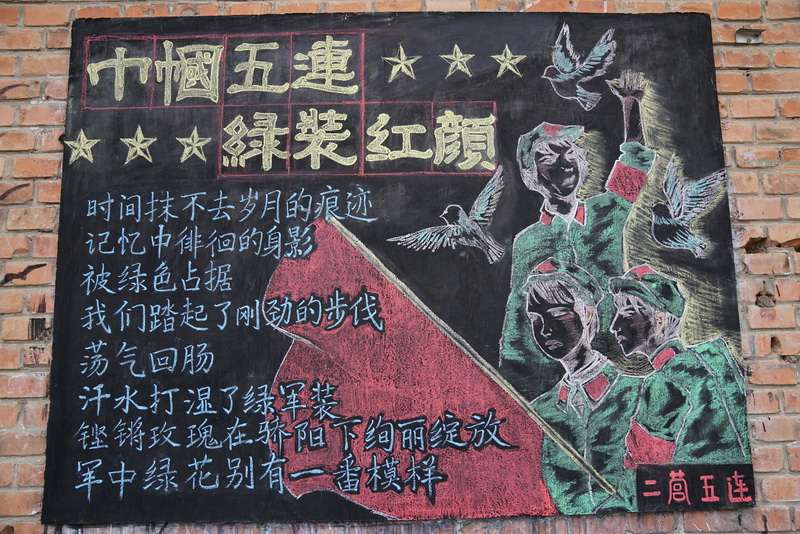 巾帼五連
緑装红顔
时间抹不去岁月的痕迹
记忆中徘徊的身影
被绿色占据
我们踏起了刚劲的步伐
荡气回肠
汗水打湿了绿军装
铿锵玫瑰在骄阳下绚丽绽放
军中绿花别有一番模样
二营五连